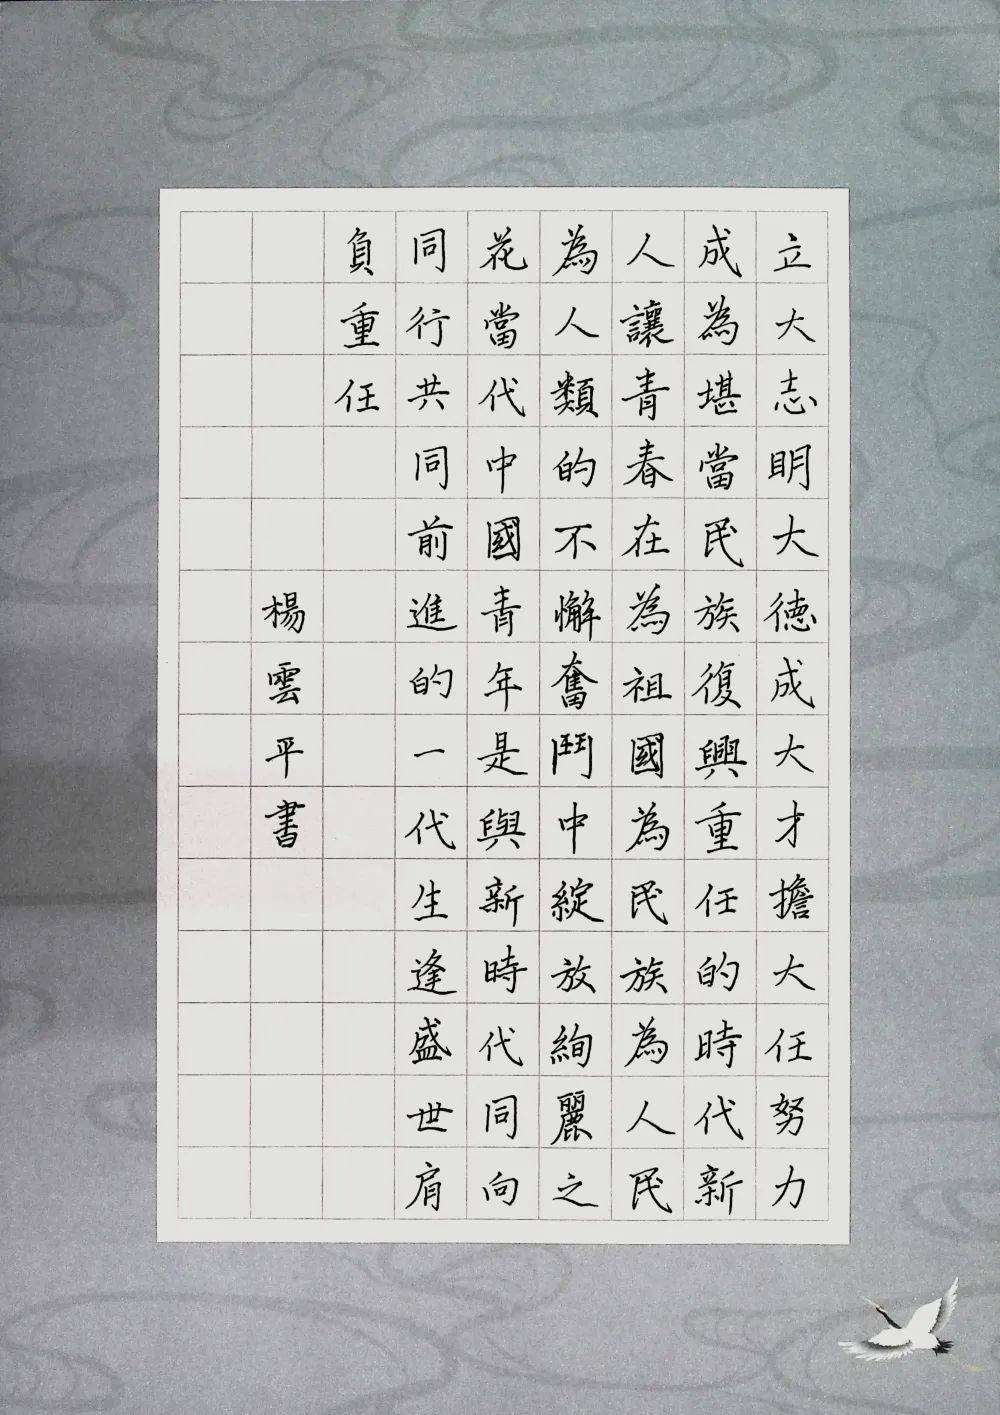 立大志明大德成大才擔大任努力
成為堪當民族復興重任的時代新
人讓青春在為祖國為民族為人民
為人類的不懈奮鬥中綻放絢麗之
花當代中國青年是與新時代同向
同行共同前進的一代生逢盛世肩
負重任
楊雲平書